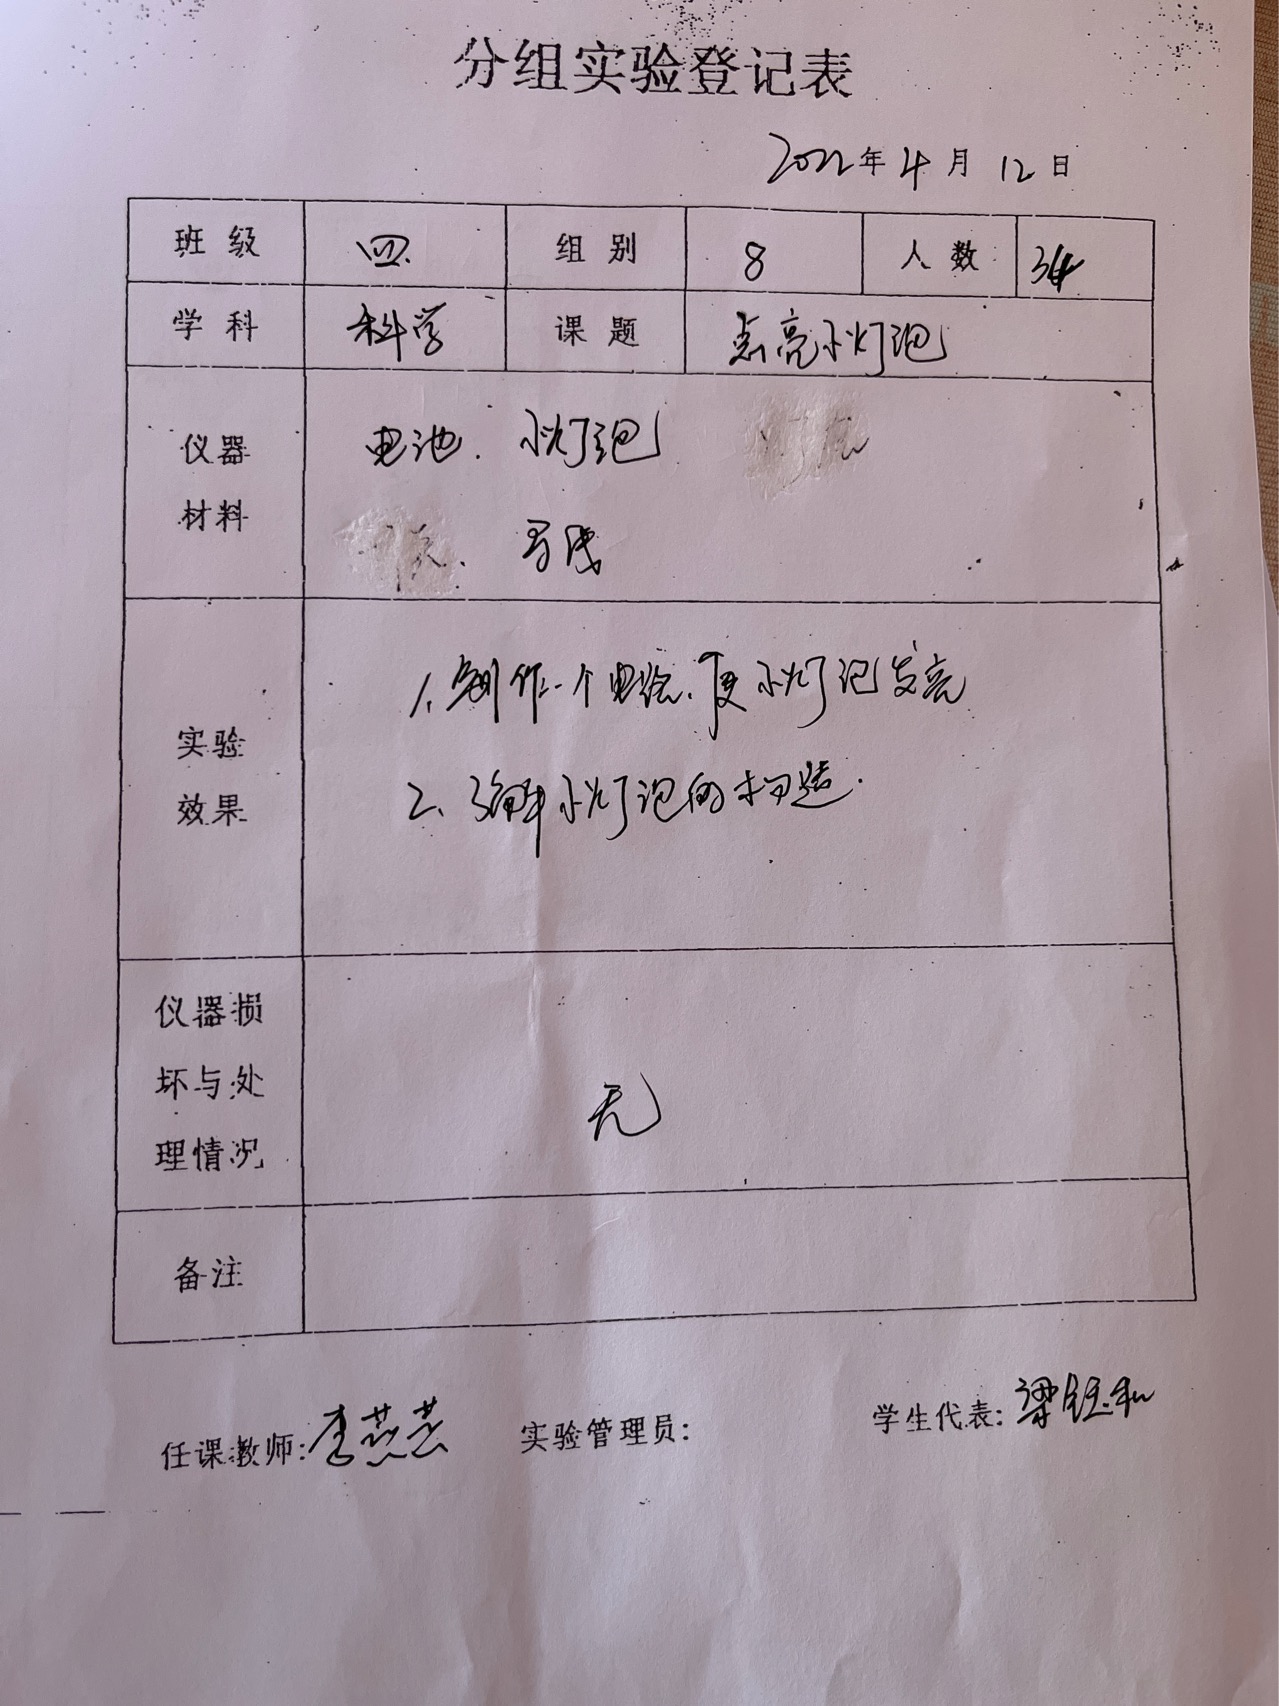 分组实验登记表
2022年4月12日
班级 四 组别 8 人数 34
学科 科学 课题 点亮小灯泡
仪器材料
电池. 小灯泡
导线
实验效果
1. 制作一个电路,使小灯泡发亮
2. 了解小灯泡的构造.
仪器损坏与处理情况
无
备注
任课教师: 李燕燕 实验管理员: 学生代表: 梁钰和